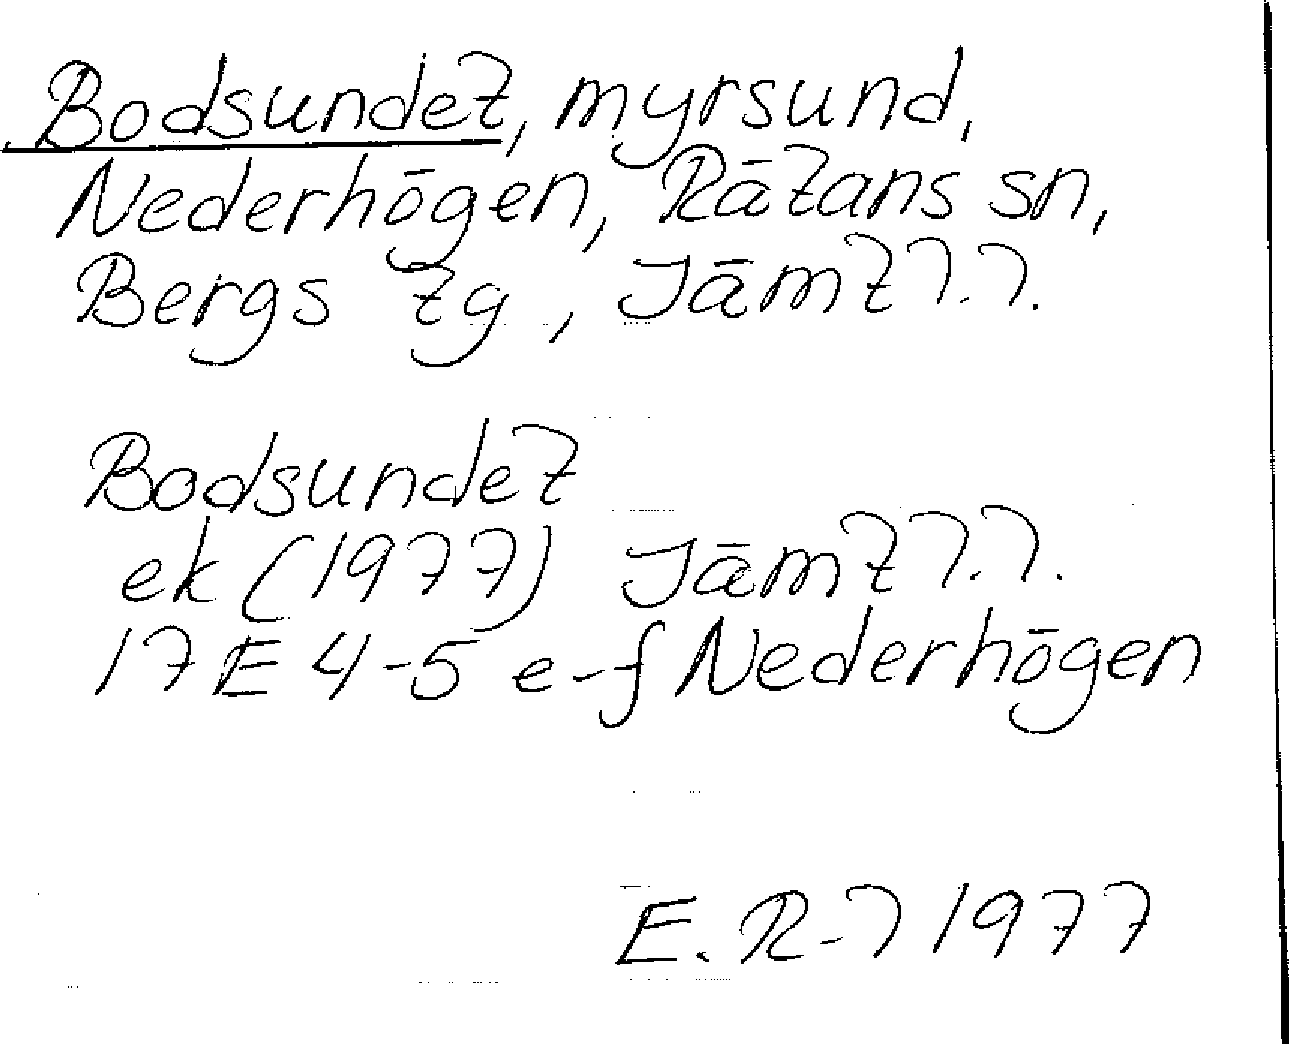 Bodsundet, myrsund,
Nederhögen, Rätans sn,
Bergs tg, Jämtl.l.
Bodsundet
ek (1977) Jämtl.l.
17E 4-5 e-f Nederhögen
E. R-l 1977